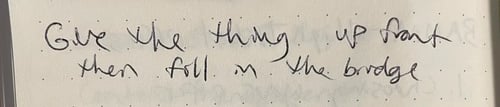 Give the thing up front
then fill in the bridge